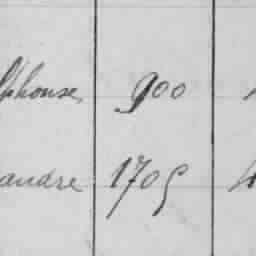 lphonse 900
andre 1705 4